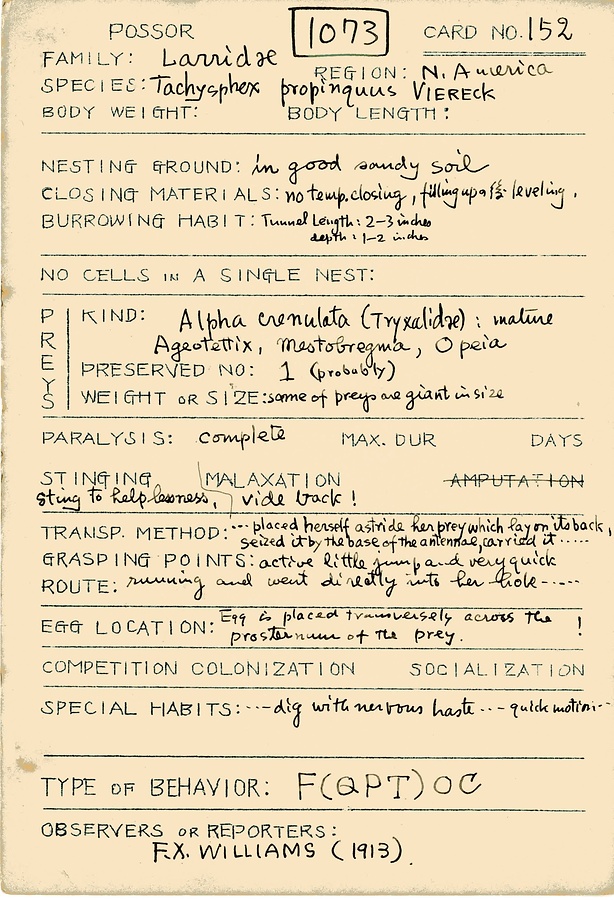 POSSOR 1073 CARD NO. 152
FAMILY: Larridae
REGION: N. America
SPECIES: Tachysphex propinquus VIERECK
BODY WEIGHT: BODY LENGTH:
NESTING GROUND: in good sandy soil
CLOSING MATERIALS: no temp. closing, filling up 後 leveling.
BURROWING HABIT: Tunnel Length: 2-3 inches
depth: 1-2 inches
NO CELLS IN A SINGLE NEST:
PREYS
KIND: Alpha crenulata (Tryxalidae): mature
Ageotettix, Mestobregma, Opeia
PRESERVED NO: 1 (probably)
WEIGHT OR SIZE: some of preys are giant in size
PARALYSIS: complete MAX. DUR DAYS
STINGING MALAXATION AMPUTATION
sting to helplessness, vide back!
TRANSP. METHOD: --- placed herself astride her prey which lay on its back,
seized it by the base of the antennae, carried it .....
GRASPING POINTS: active little jump and very quick
ROUTE: running and went directly into her hole -----
EGG LOCATION: Egg is placed transversely across the
prosternum of the prey. !
COMPETITION COLONIZATION SOCIALIZATION
SPECIAL HABITS: --- dig with nervous haste --- quick motion ---
TYPE OF BEHAVIOR: F(QPT)OC
OBSERVERS OR REPORTERS:
F.X. WILLIAMS (1913).